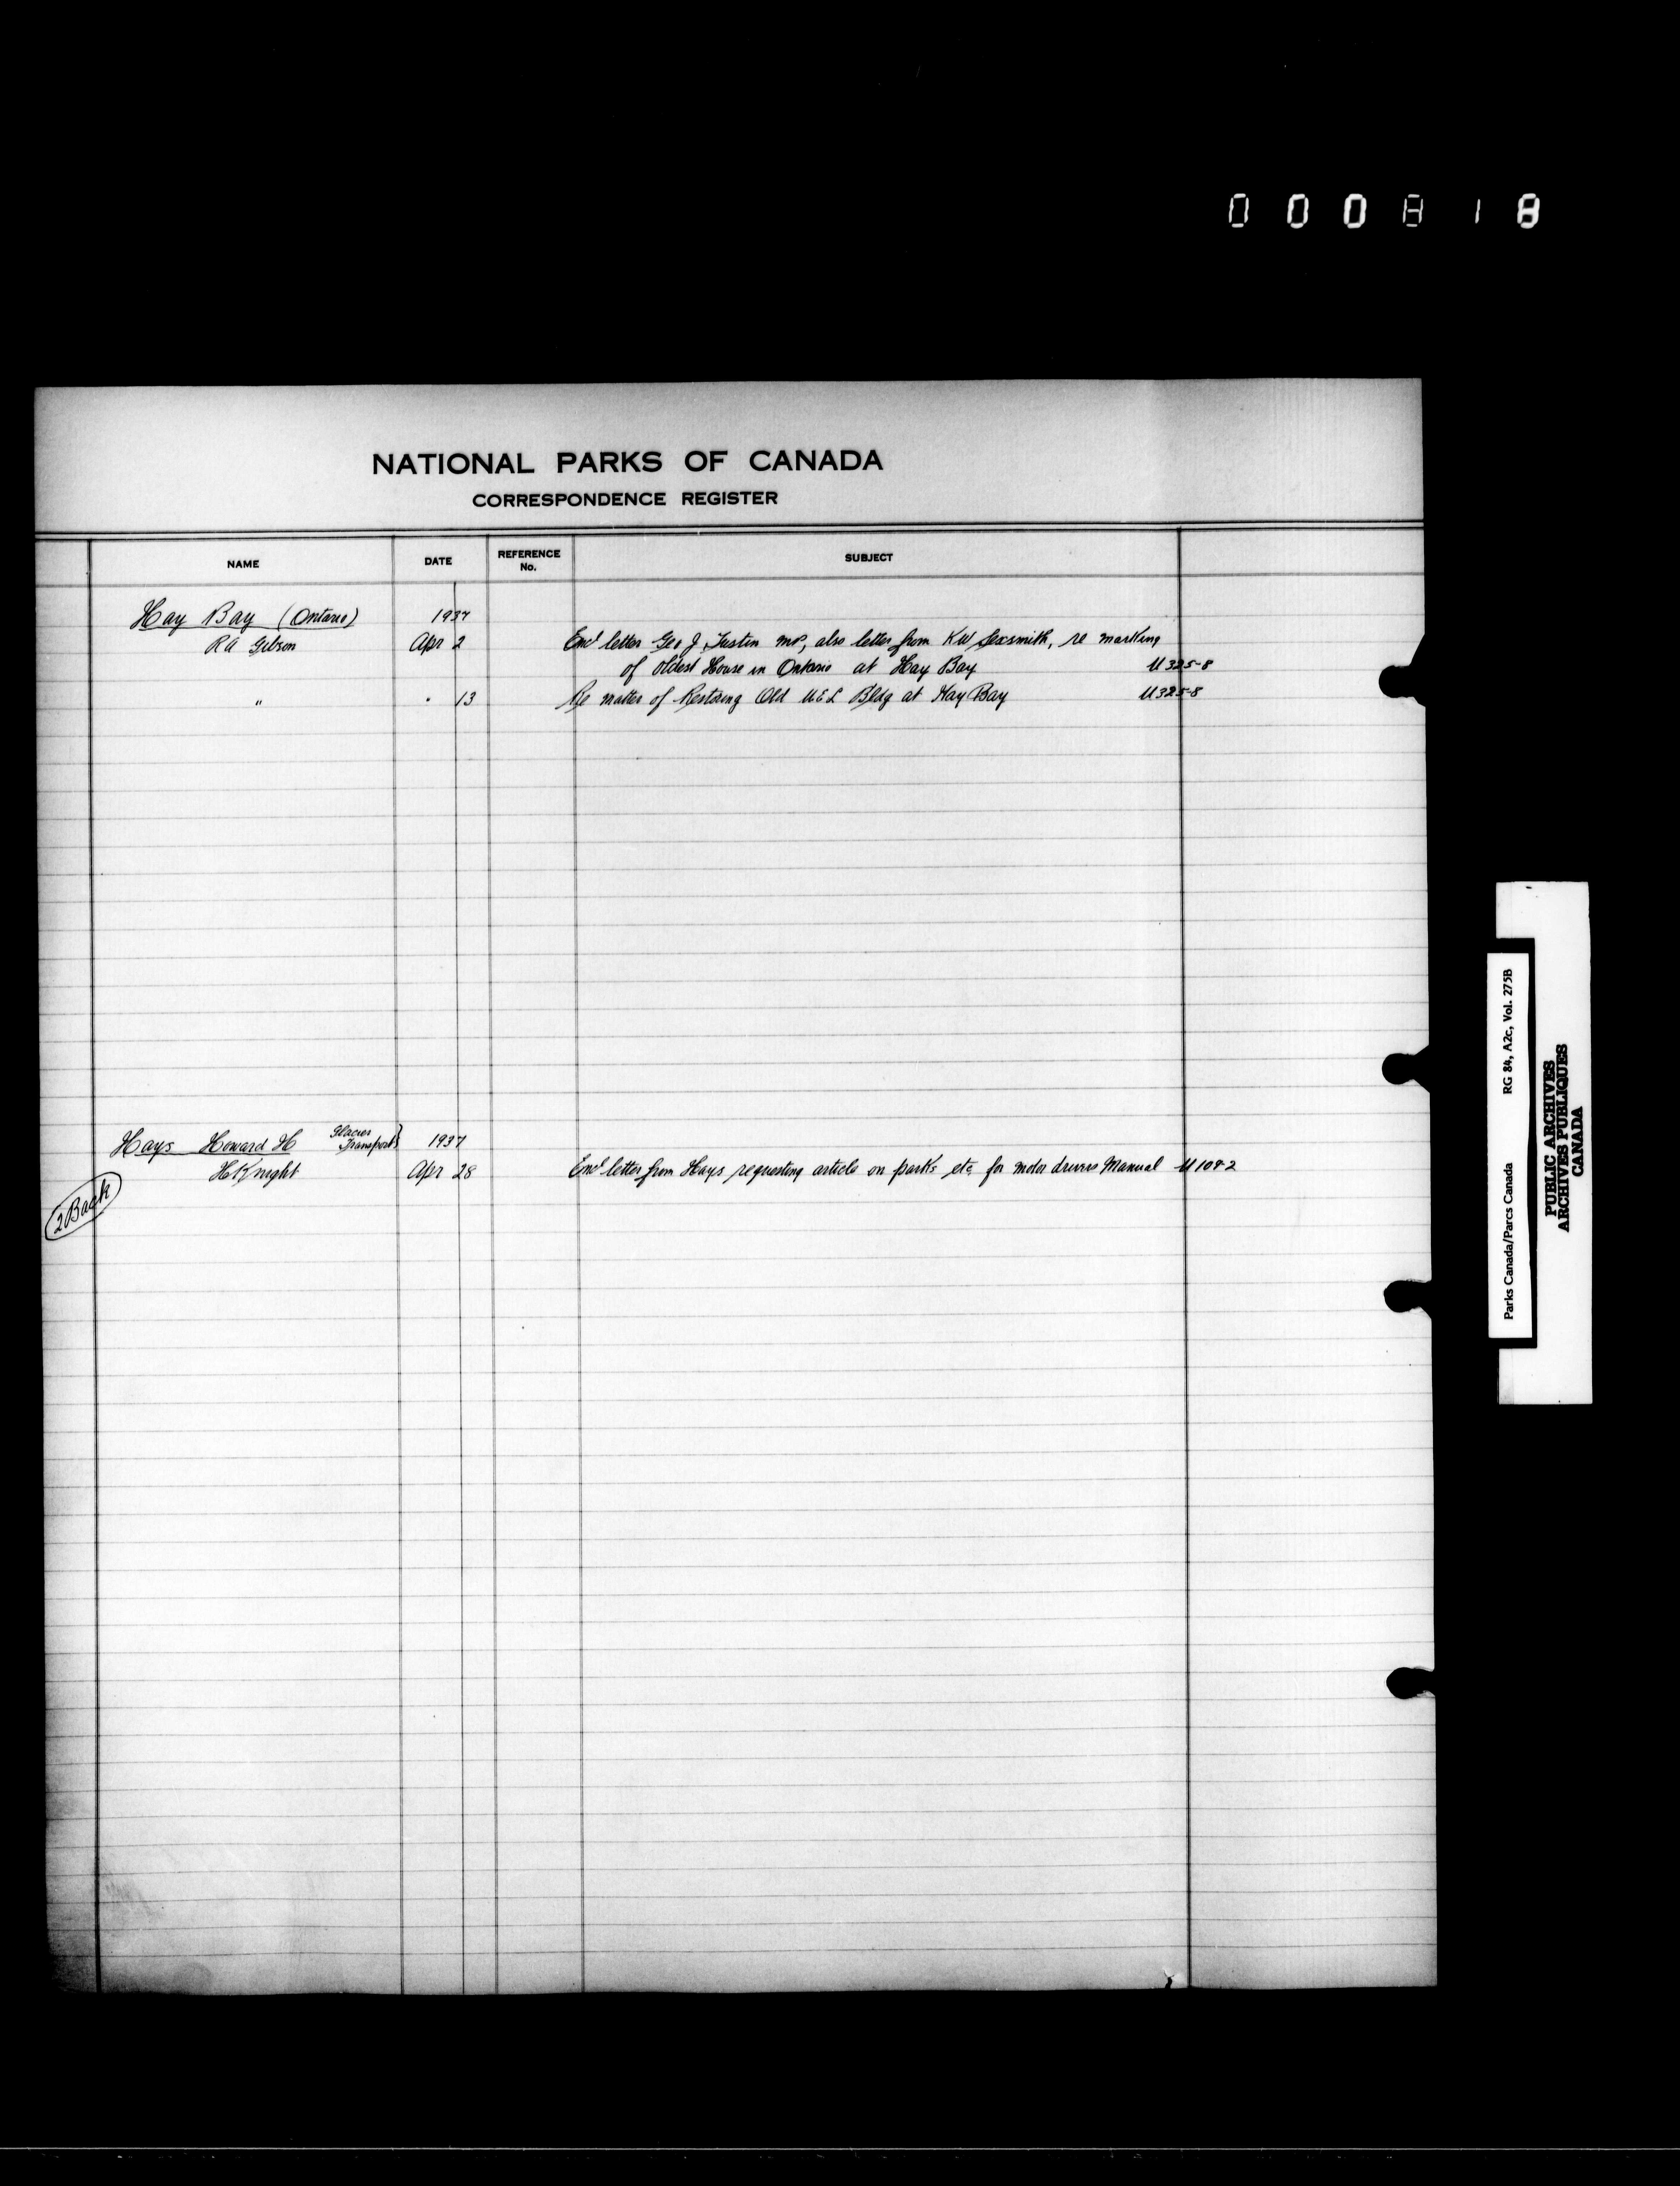 000818
NATIONAL PARKS OF CANADA
CORRESPONDENCE REGISTER
NAME DATE REFERENCE No. SUBJECT
Hay Bay (Ontario) 1937
RA Gibson Apr 2 Encl letter Geo J Tustin MP, also letter from KW Sexsmith, re marking
of oldest House in Ontario at Hay Bay U325-8
" " 13 Re matter of Restoring Old U E L Bldg at Hay Bay U325-8
Hays Howard H Glacier Transport} 1937
H Knight Apr 28 Encl letter from Hays requesting article on parks etc for motor drivers Manual U108-2
2 Back
Parks Canada/Parcs Canada RG 84, A2c, Vol. 275B
PUBLIC ARCHIVES
ARCHIVES PUBLIQUES
CANADA